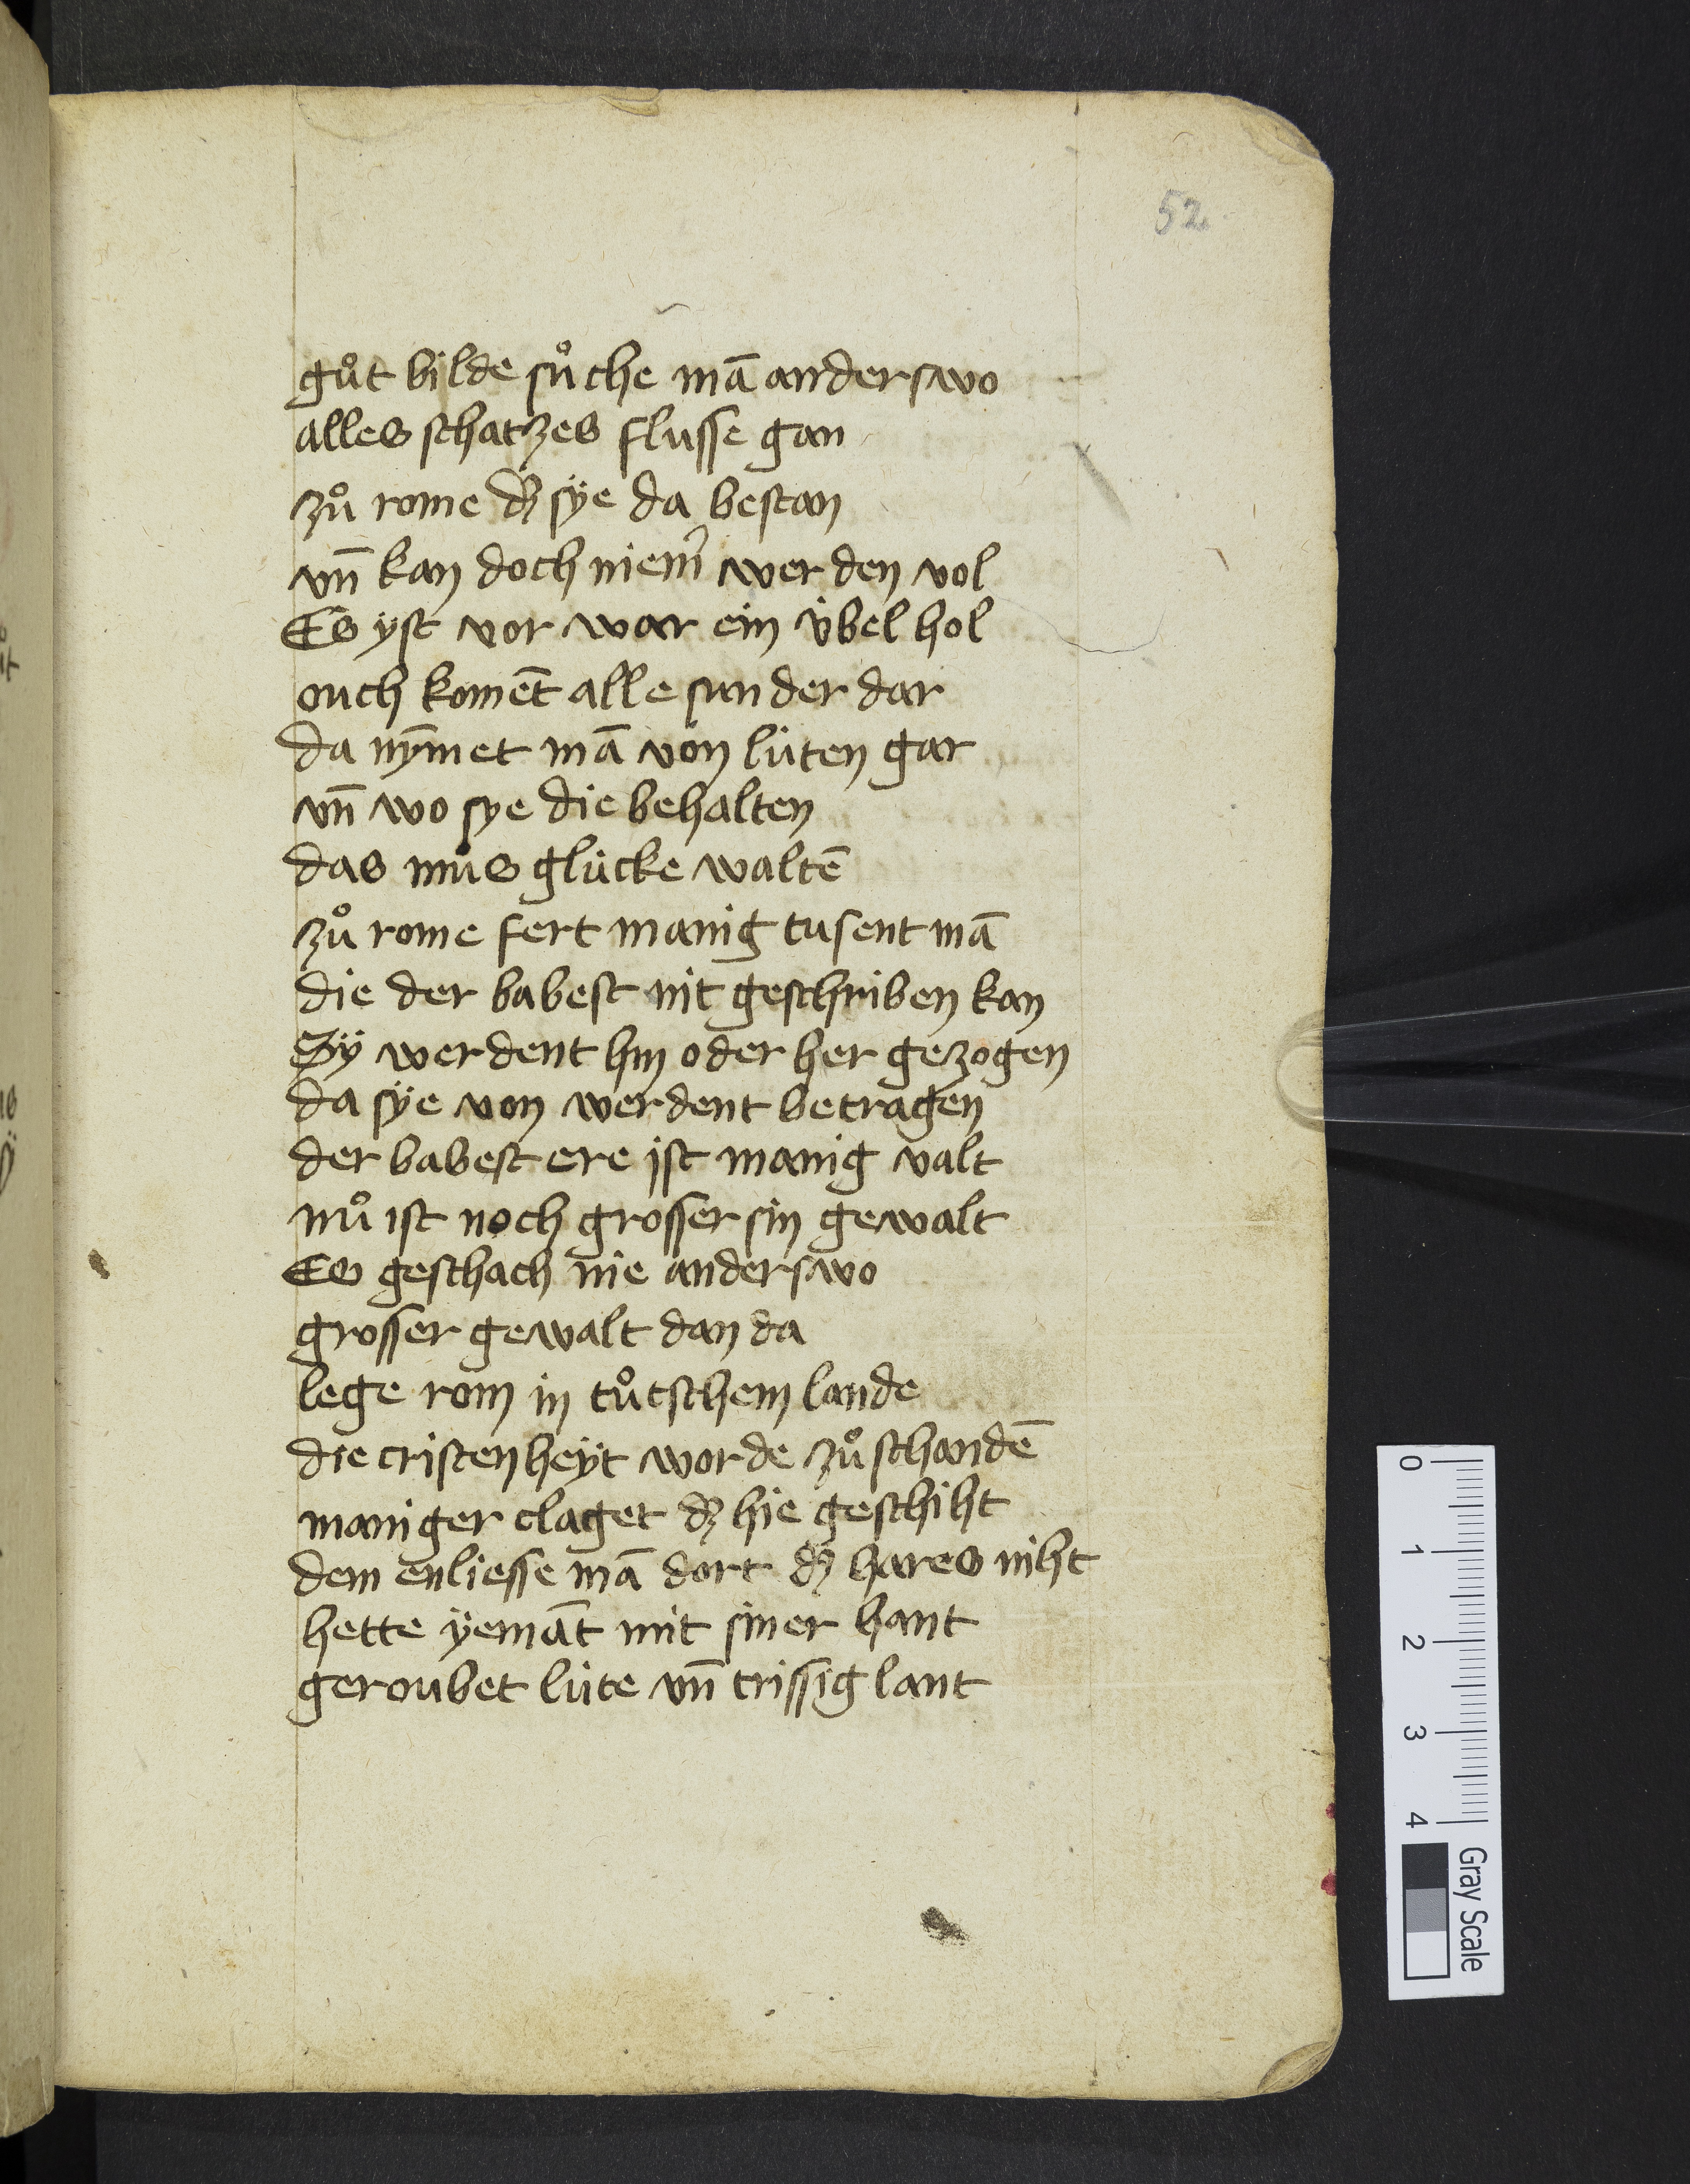 52
gůt bilde sůche mā anderswo
alles schatzes flusse gan
zů rome dʒ sÿe da bestan
vn̄ kan doch niem̉ werden vol
Es yst vor war ein v̇bel hol
ouch koment̄ alle sunder dar
da nȳmet mā von lüten gar
vn̄ wo sye die behalten
das můs glücke waltē
zů rome fert manig tusent mā
die der babest nit geschriben kan
Sÿ werdent hin oder her gezogen
da sÿe von werdent betragen
der babest ere ist manig valt
nů ist noch grosser sin gewalt
Es geschach nie anderswo
grosser gewalt dan da
lege rom in tůtschem lande
die cristenheÿt worde zů schandē
maniger claget dʒ hie geschiht
dem enliesse mā dort dʒ hares niht
hette ÿemāt mit siner hant
geroubet lüte vn̄ trissig lant
0 1 2 3 4
Gray Scale